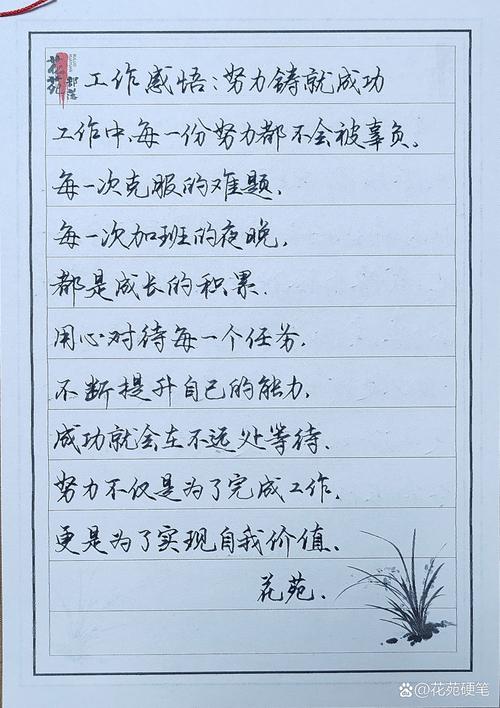 工作感悟:努力铸就成功
工作中,每一份努力都不会被辜负。
每一次克服的难题,
每一次加班的夜晚,
都是成长的积累.
用心对待每一个任务,
不断提升自己的能力,
成功就会在不远处等待.
努力不仅是为了完成工作,
更是为了实现自我价值、
花苑.
花苑
@花苑硬笔